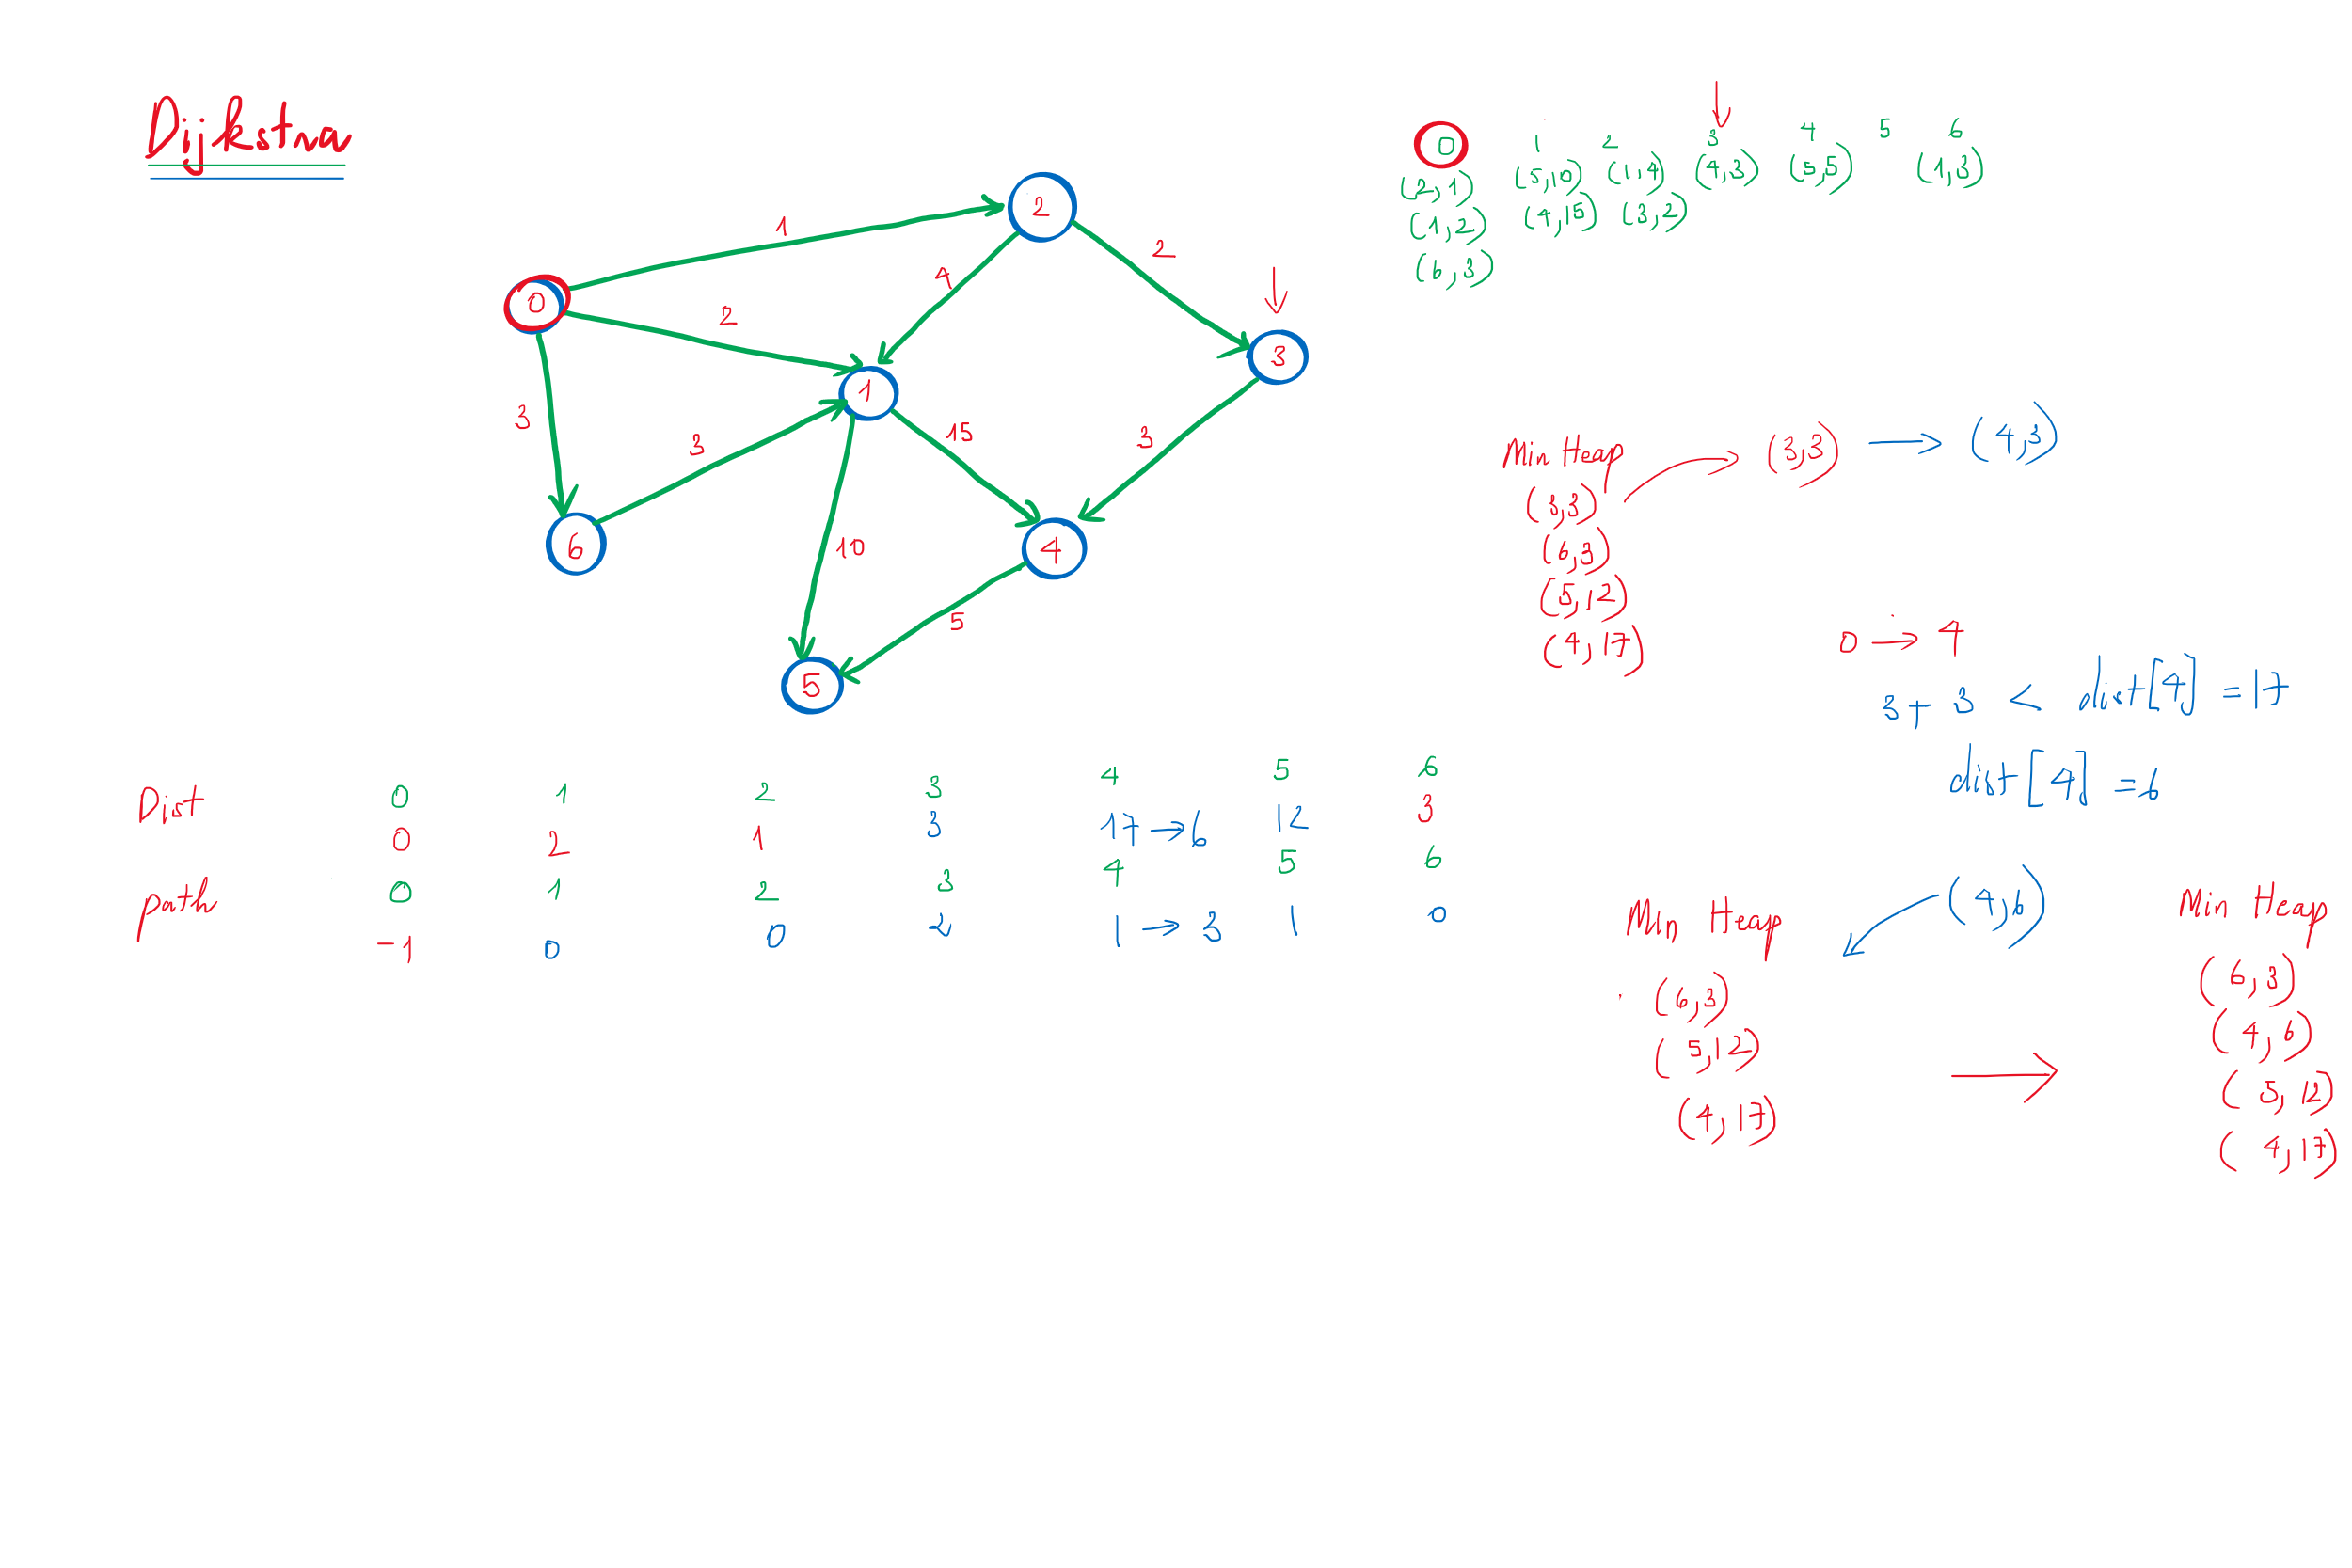 Dijkstra
0 1 2 3 4 5 6
(2,1) (5,10) (1,4) (4,3) (5,5) (1,3)
(1,2) (4,15) (3,2)
(6,3)
2
1
4
2
0
2
3
1
3
3
15
3
6
4
10
5
5
Min Heap
(3,3)
(6,3)
(5,12)
(4,17)
(3,3) → (4,3)
0 → 4
3 + 3 < dist[4] = 17
dist[4] = 6
Dist 0 1 2 3 4 5 6
0 2 1 3 17 → 6 12 3
path 0 1 2 3 4 5 6
-1 0 0 2 1 → 3 1 0
Min Heap
(6,3)
(5,12)
(4,17)
(4,6)
→
Min Heap
(6,3)
(4,6)
(5,12)
(4,17)